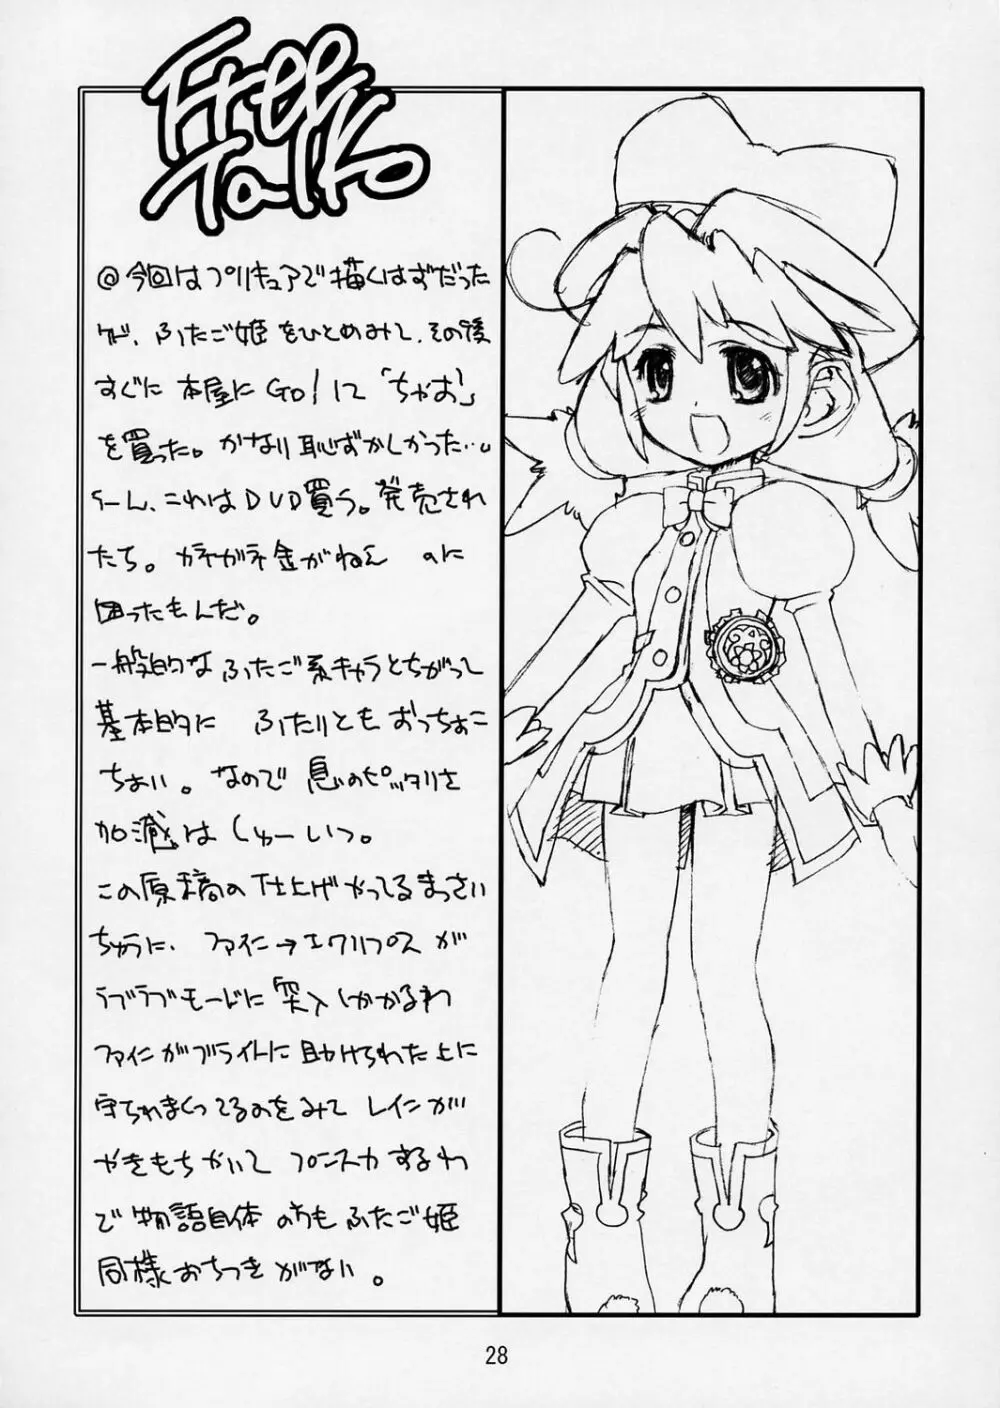 Free
Talk
@今回はプリキュアで描くはずだった
けど、ふたご姫をひとめみて、その後
すぐに本屋にGO!して「ちゃお」
を買った。かなり恥ずかしかった…。
うーん、これはDVD買う。発売され
たら。カネがネ金がねえ のに
困ったもんだ。
一般的なふたご系キャラとちがって
基本的に ふたりともおっちょこ
ちょい。なので息のピッタリさ
加減はしゅーいつ。
この原稿の仕上げやってるまっさい
ちゅうに、ファイン→エクリプスが
ラブラブモードに突入しかかるわ
ファインがブライトに助けられた上に
守られまくってるのをみてレインが
やきもちかいてプンスカするわ
で物語自体の方もふたご姫
同様おちつきがない。
28